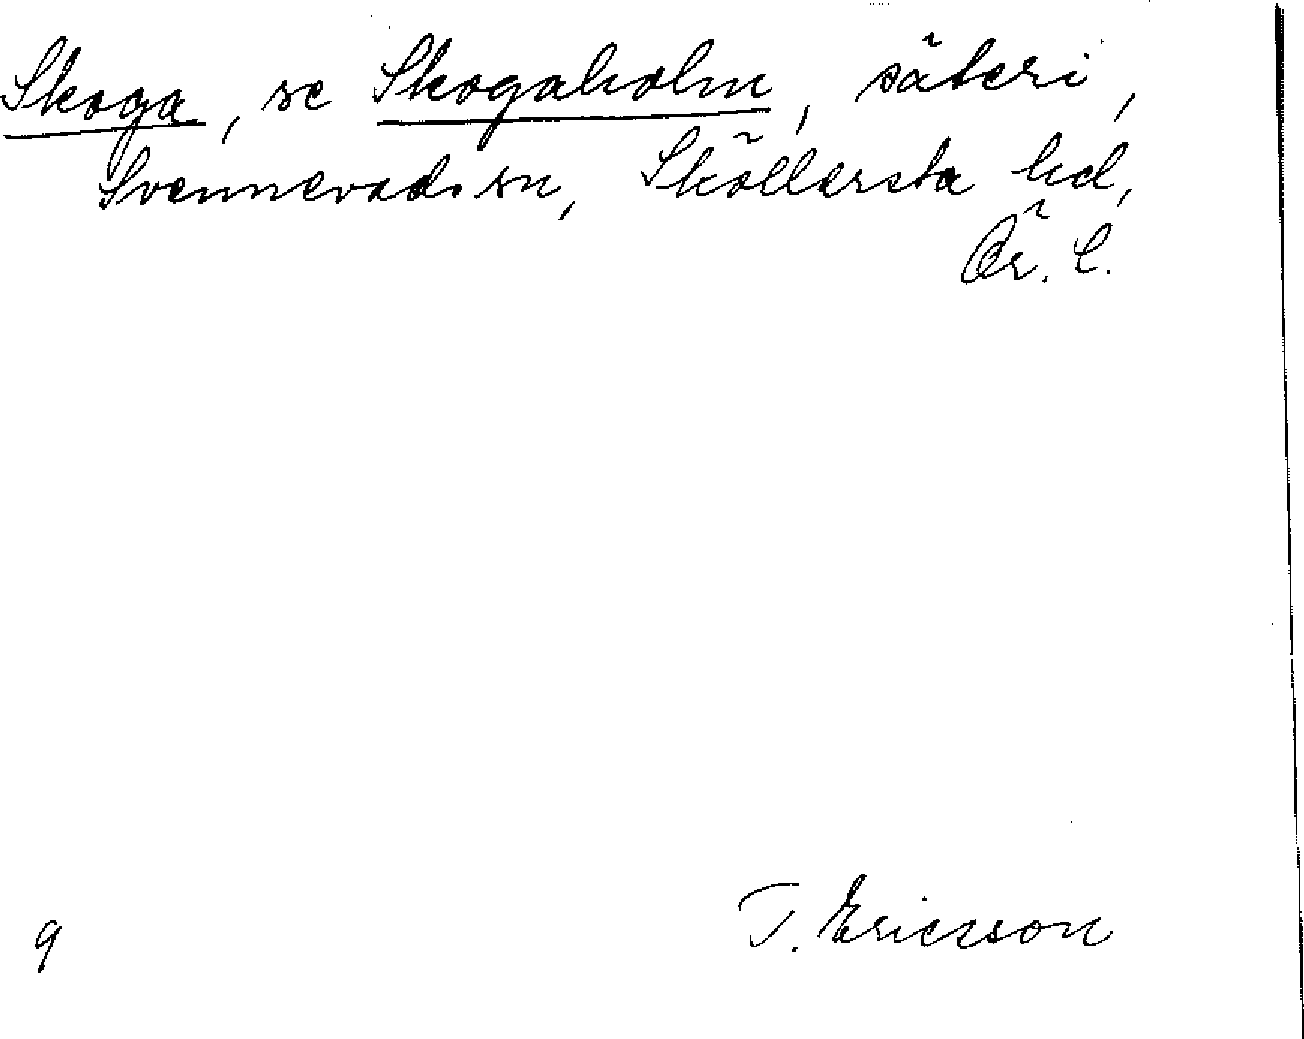 Skoga, se Skogaholm, säteri,
Svennevads sn, Sköllersta hd,
Ör. l.
T. Ericsson
9